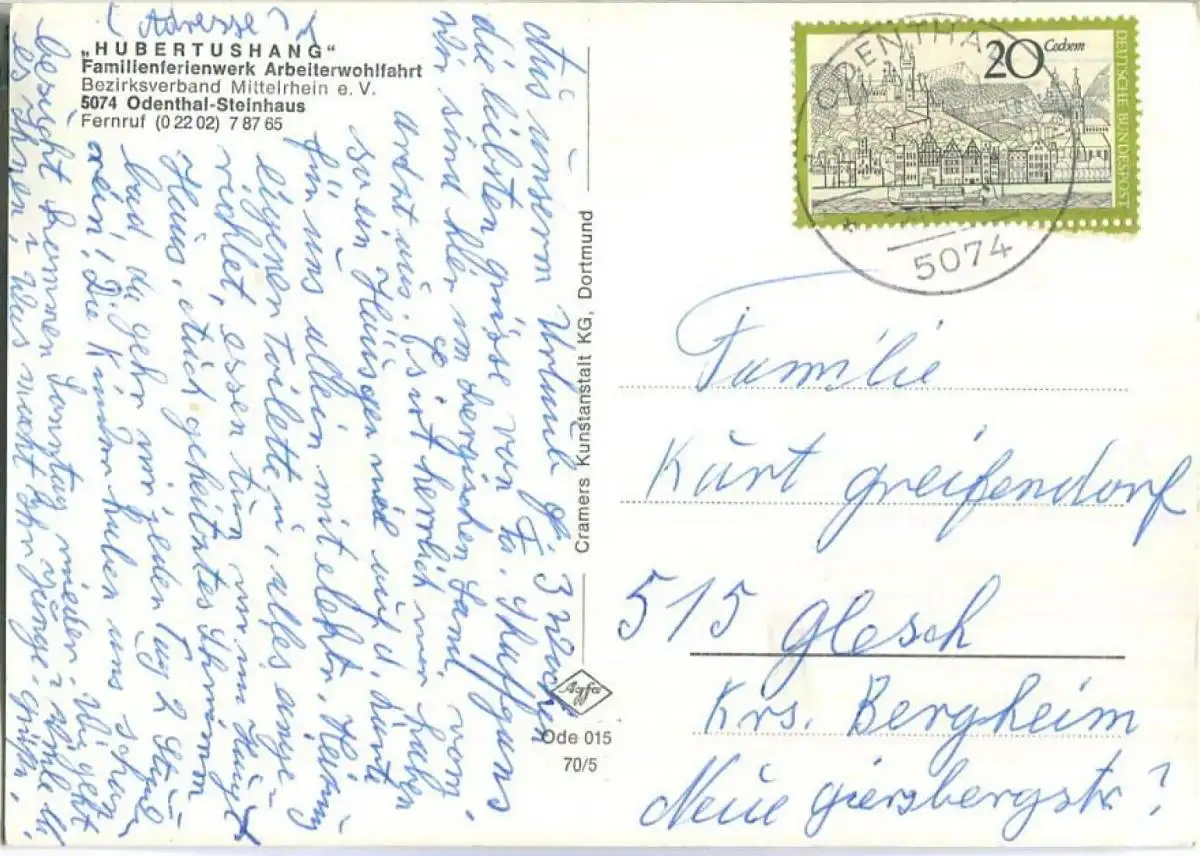 (Adresse)
„HUBERTUSHANG"
Familienferienwerk Arbeiterwohlfahrt
Bezirksverband Mittelrhein e. V.
5074 Odenthal-Steinhaus
Fernruf (0 22 02) 7 87 65
Aus unserm Urlaub 3 Wochen
die liebsten grüsse von Fa.
wir sind hier im bergischen Land, vom
arzt aus. Es ist herrlich wir haben
so ein Häusgen
für uns allein mit elektr. Heizung
eigenen toilette u, alles einge-
richtet, essen tun wir im Haupt
Haus, auch geheiztes Schwimm
bad da gehn wir jeden Tag 2 Stund
rein, Die Kinder haben uns schon
besucht kommen Sonntag wieder, Wie geht
es Ihnen u Was macht Ihr Junge, grüße
Cramers Kunstanstalt KG, Dortmund
Agfa
Ode 015
70/5
20 Cochem
DEUTSCHE BUNDESPOST
ODENTHAL
5074
Familie
Kurt Greifendorf
515 Glesch
Krs. Bergheim
Neue Giersbergstr ?